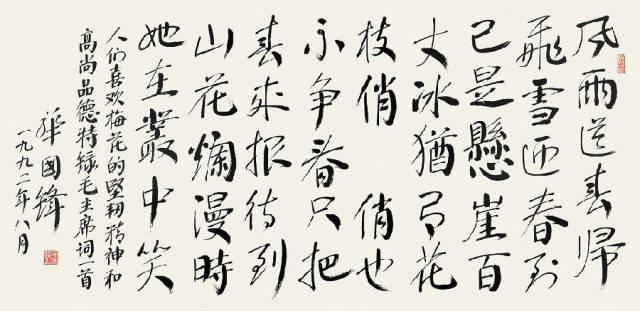 风雨送春歸
飛雪迎春到
已是懸崖百
丈冰猶有花
枝俏 俏也
不争春只把
春来报待到
山花爛漫時
她在叢中笑
人们喜欢梅花的堅韧精神和
高尚品德特録毛主席词一首
華國鋒
一九九二年八月